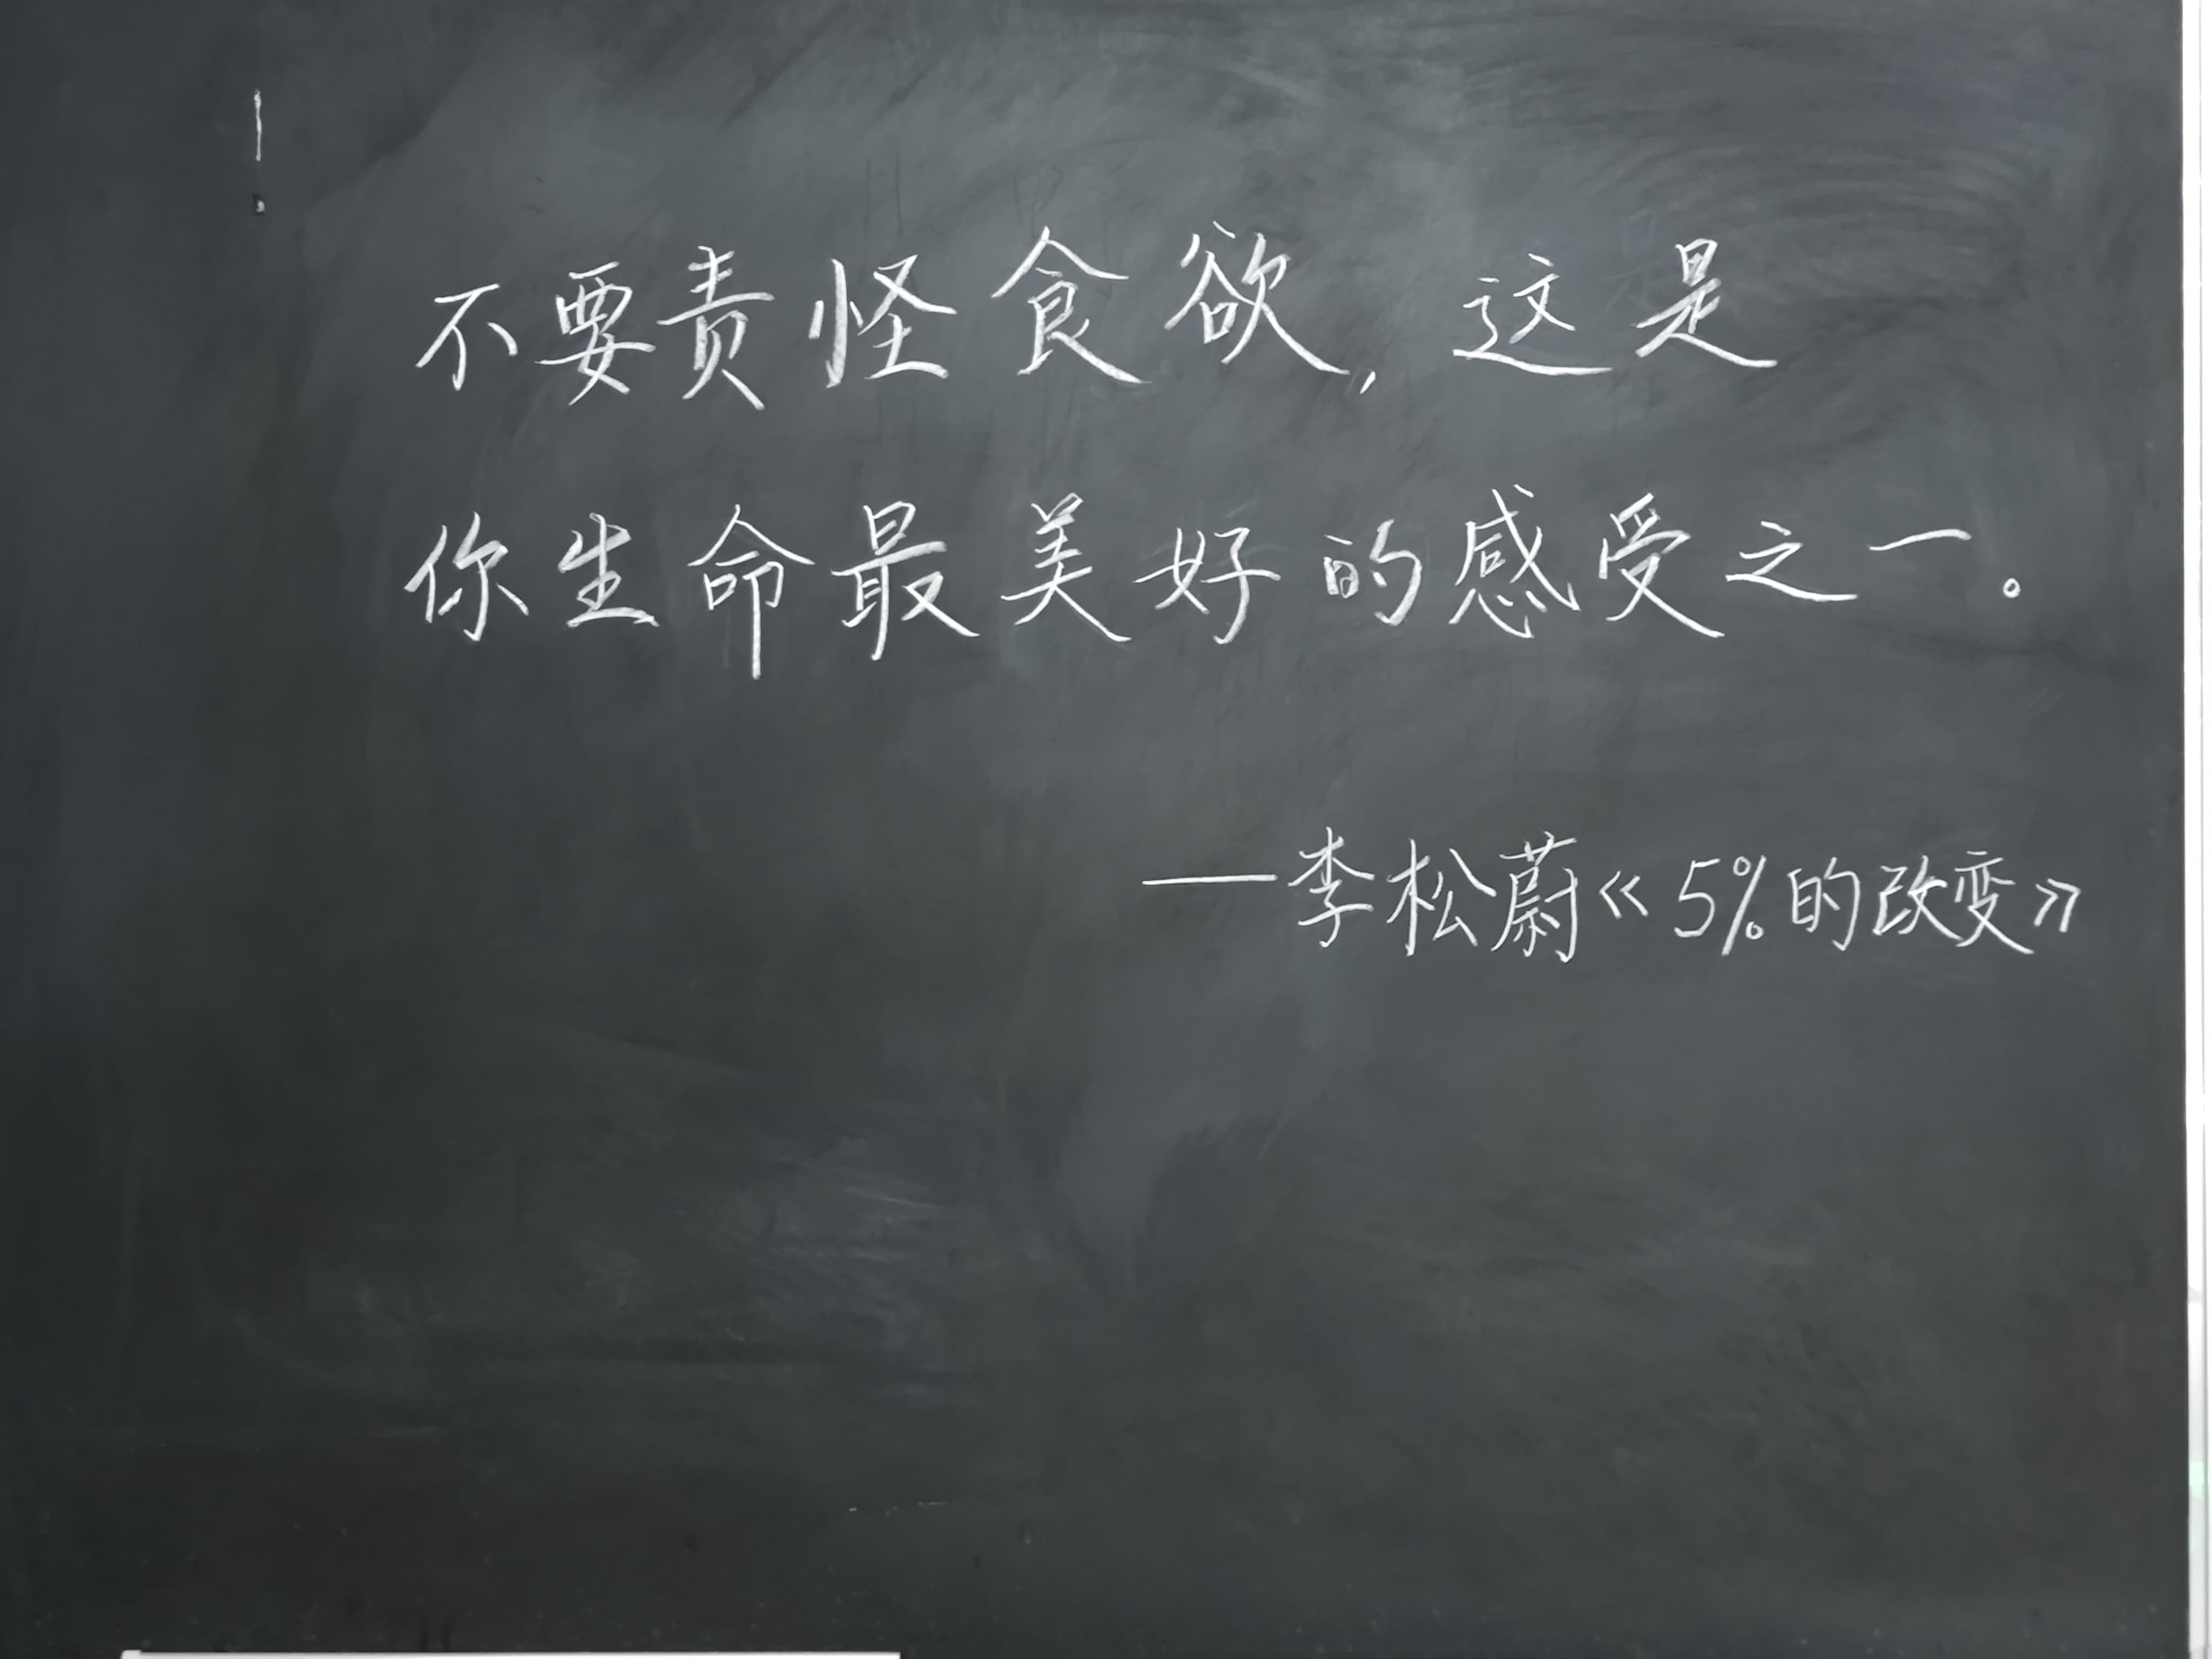 不要责怪食欲，这是
你生命最美好的感受之一。
——李松蔚《5%的改变》